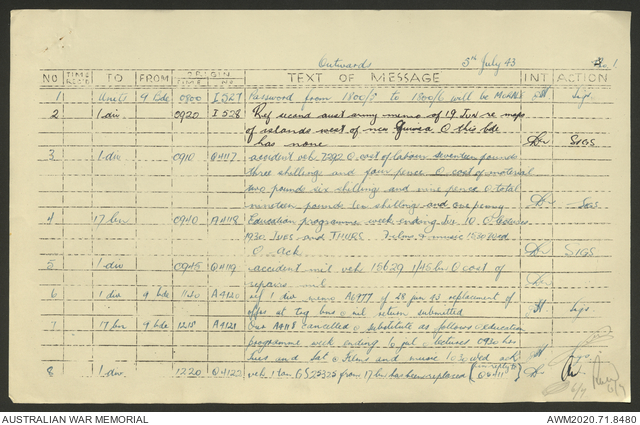 Outwards 5th July 43 1
ORIGIN
NO TIME REC'D TO FROM TIME NO TEXT OF MESSAGE INT ACTION
1 Units 9 Bde 0800 I 527 Password from 1800/5 to 1800/6 will be Sigs
2 1 div 0920 I 528 Ref second aust army memo of 19 Jun re maps
of islands west of new Guinea O this bde
has none SIGS
3 1 div 0910 Q4117 accident veh 7292 O cost of labour seventeen pounds
three shillings and four pence O cost of material
two pounds six shillings and nine pence O total
nineteen pounds ten shillings and one penny Sigs
4 17 bn 0940 A4118 Education programme week ending 10 O lectures
1930 TUES and THURS Films & music 1530 Wed
O ack SIGS
5 1 div 0945 Q4119 accident mil veh 15629 1/45 bn O cost of
repairs nil
6 1 div 9 bde 1120 A4120 ref 1 div memo A6977 of 28 jun 43 replacement of
offrs at trg bns O nil return submitted Sigs
7 17 bn 9 bde 1218 A4121 Our A4118 cancelled O substitute as follows O education
programme week ending 10 jul O lectures 0930 hrs
tues and sat O films and music 1530 wed ack
8 1 div 1220 Q4122 veh 1 ton G525325 from 17 bn has been replaced
6/7 6/7
AUSTRALIAN WAR MEMORIAL AWM2020.71.8480